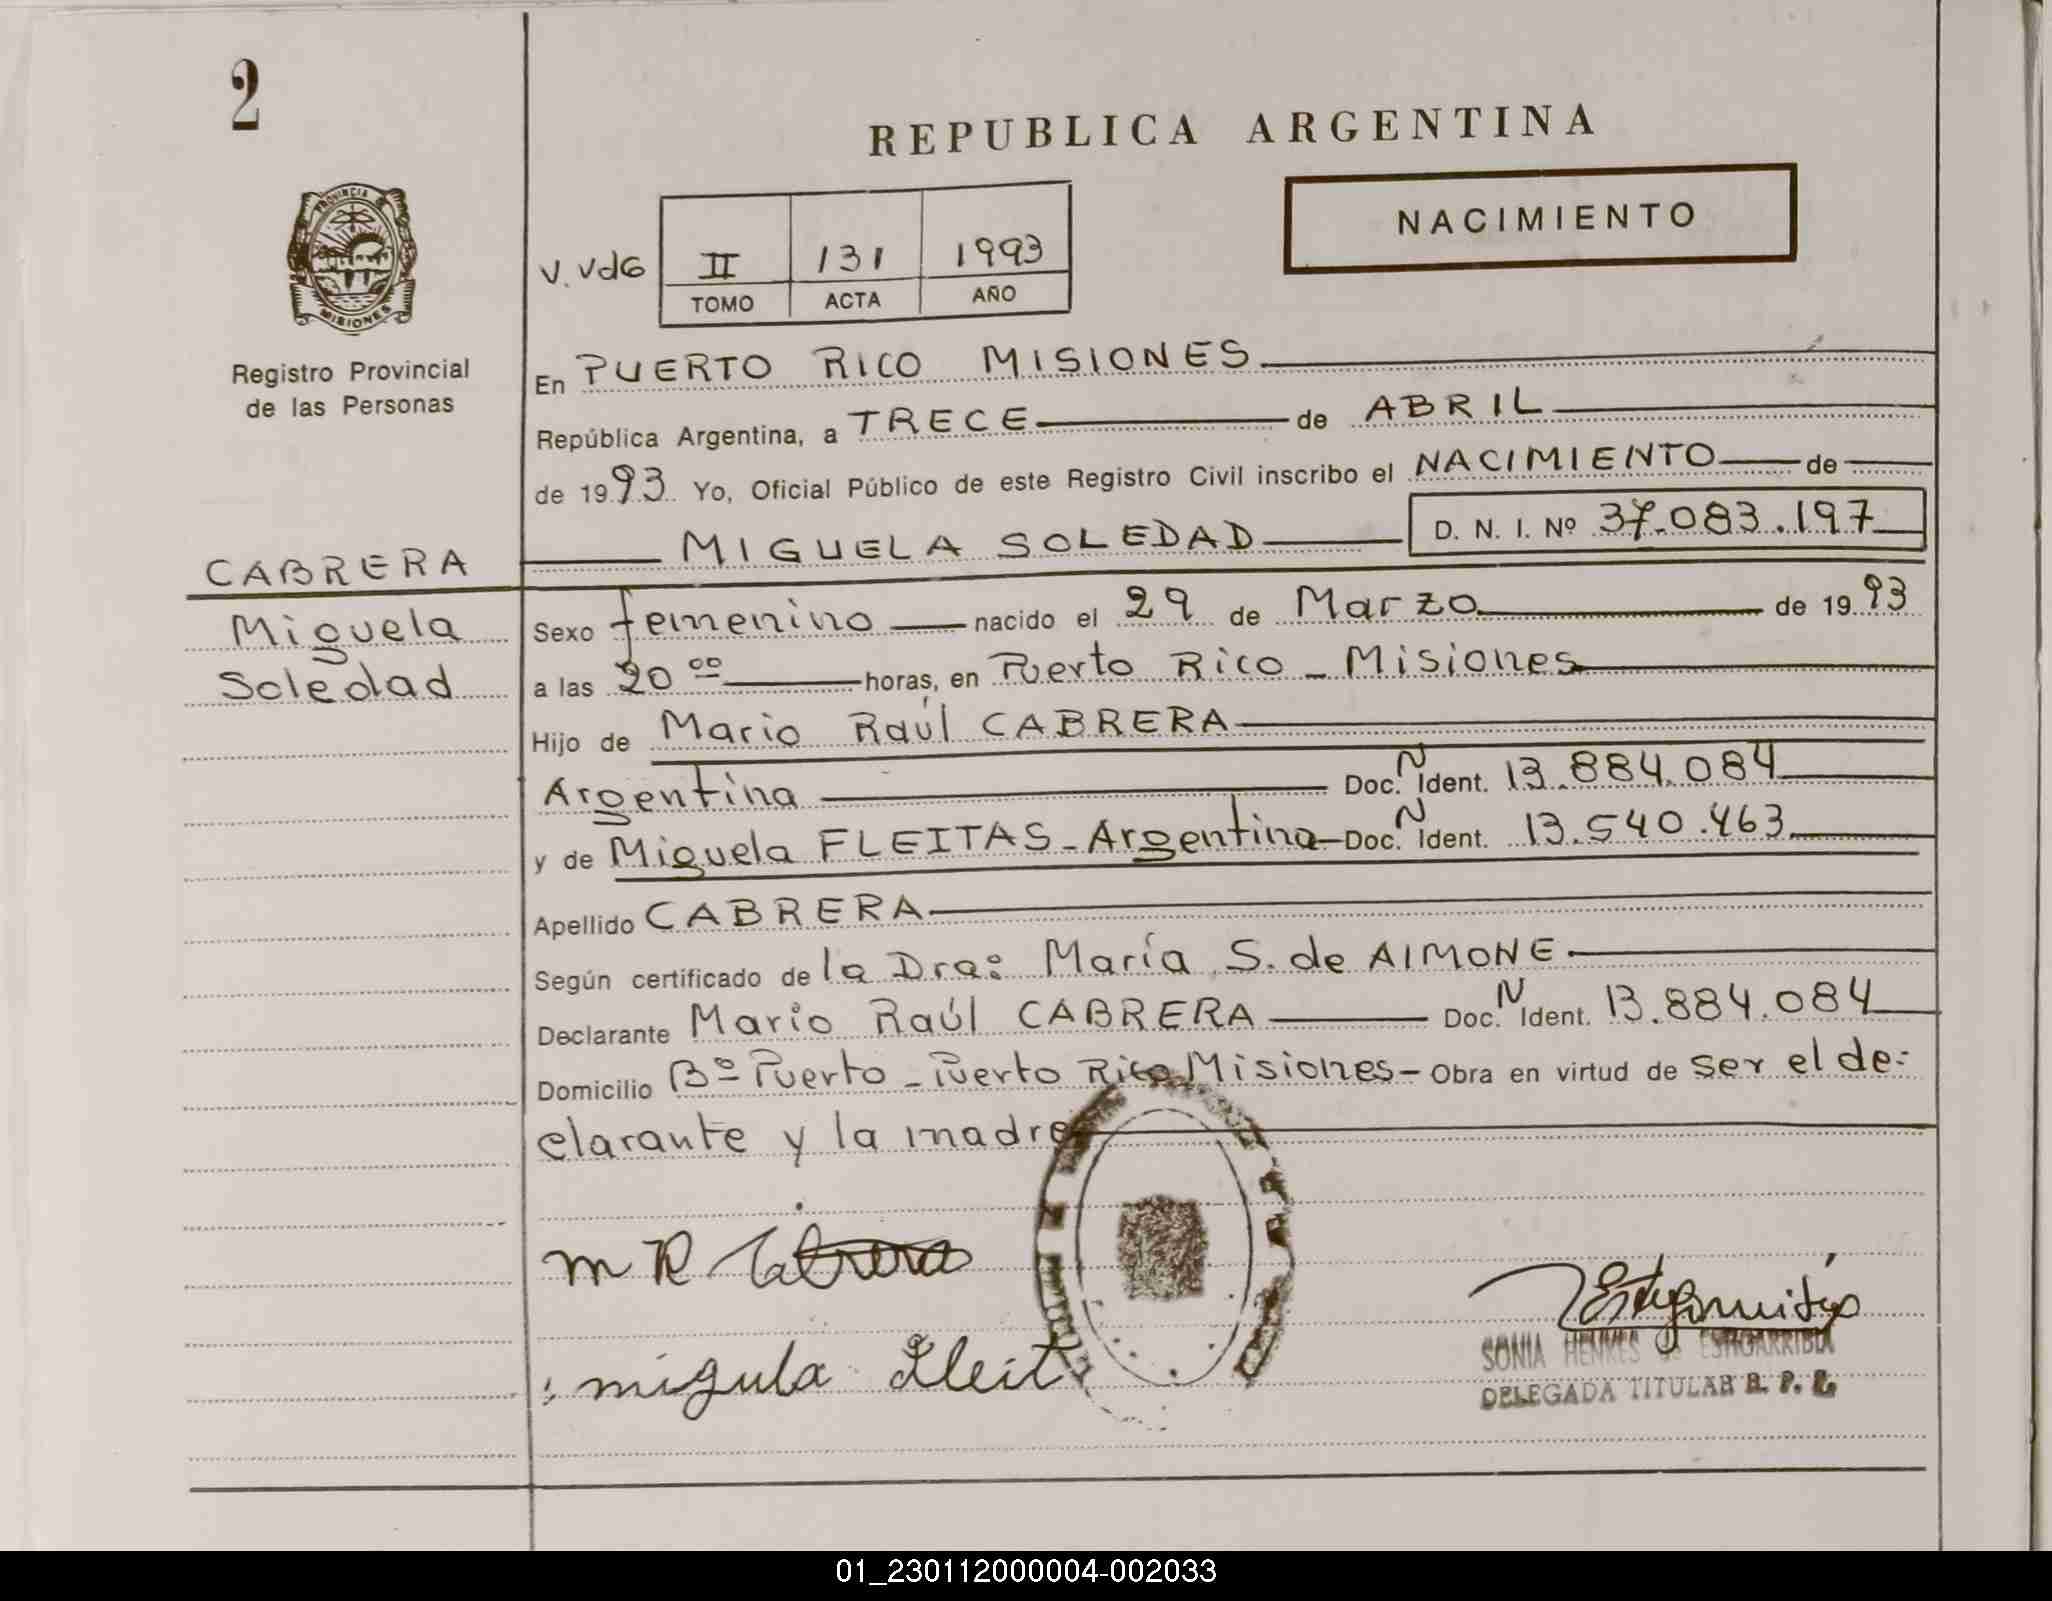 2
REPUBLICA ARGENTINA
NACIMIENTO
PROVINCIA
MISIONES
V. VdG II 131 1993
TOMO ACTA AÑO
Registro Provincial
de las Personas
En PUERTO RICO MISIONES
República Argentina, a TRECE de ABRIL
de 1993 Yo, Oficial Público de este Registro Civil inscribo el NACIMIENTO de
MIGUELA SOLEDAD D. N. I. Nº 37.083.197
CABRERA
Miguela
Soledad
Sexo femenino nacido el 29 de Marzo de 1993
a las 20 00 horas, en Puerto Rico - Misiones
Hijo de Mario Raúl CABRERA
Argentina Doc. N Ident. 13.884.084
y de Miguela FLEITAS - Argentina - Doc. N Ident. 13.540.463
Apellido CABRERA
Según certificado de la Dra: María S. de AIMONE
Declarante Mario Raúl CABRERA Doc. N Ident. 13.884.084
Domicilio Bº Puerto - Puerto Rico Misiones - Obra en virtud de ser el de-
clarante y la madre
M R Cabrera
migula Fleit
SONIA HENKES de ESHGARRIBIA
DELEGADA TITULAR R. P. P.
01_230112000004-002033